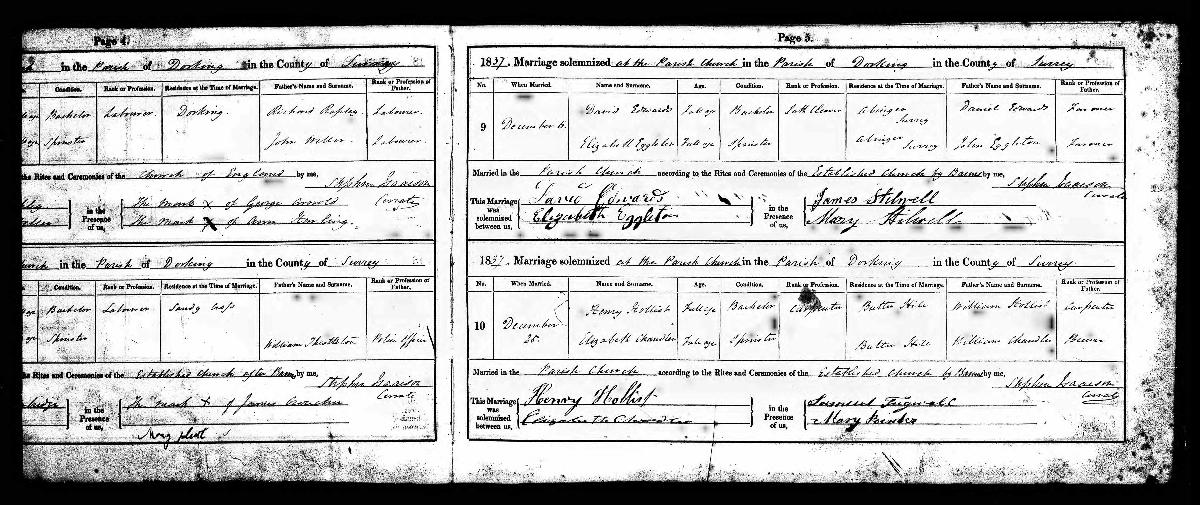 Page 4.
in the Parish of Dorking in the County of Surrey
Condition. Rank or Profession. Residence at the Time of Marriage. Father's Name and Surname. Rank or Profession of Father.
Bachelor Labourer Dorking. Richard Rapley Labourer.
Spinster John Weller Labourer.
the Rites and Ceremonies of the Church of England by me,
Stephen Isaacson
Curate
in the Presence of us,
The mark X of George
The mark X of Ann
in the Parish of Dorking in the County of Surrey
Condition. Rank or Profession. Residence at the Time of Marriage. Father's Name and Surname. Rank or Profession of Father.
Bachelor Labourer Sandy
Spinster William Thistleton Police Officer
the Rites and Ceremonies of the Established Church after Banns by me,
Stephen Isaacson
Curate
in the Presence of us,
The mark X of James
Mary
Page 5.
1837. Marriage solemnized at the Parish Church in the Parish of Dorking in the County of Surrey
No. When Married. Name and Surname. Age. Condition. Rank or Profession. Residence at the Time of Marriage. Father's Name and Surname. Rank or Profession of Father.
9 December David Edwards Full age Bachelor Abinger Surrey Daniel Edwards Farmer
Elizabeth Eggleton Full age Spinster Abinger Surrey John Eggleton Farmer
Married in the Parish Church according to the Rites and Ceremonies of the Established Church by Banns by me,
Stephen Isaacson
Curate
This Marriage was solemnized between us,
David Edwards
Elizabeth Eggleton
in the Presence of us,
James Stilwell
Mary Stilwell
1837. Marriage solemnized at the Parish Church in the Parish of Dorking in the County of Surrey
No. When Married. Name and Surname. Age. Condition. Rank or Profession. Residence at the Time of Marriage. Father's Name and Surname. Rank or Profession of Father.
10 December 25. Henry Hollist Full age Bachelor Carpenter Butter Hill William Hollist Carpenter
Elizabeth Chandler Full age Spinster Butter Hill William Chandler
Married in the Parish Church according to the Rites and Ceremonies of the Established Church by Banns by me,
Stephen Isaacson
Curate
This Marriage was solemnized between us,
Henry Hollist
Elizabeth Chandler
in the Presence of us,
Mary